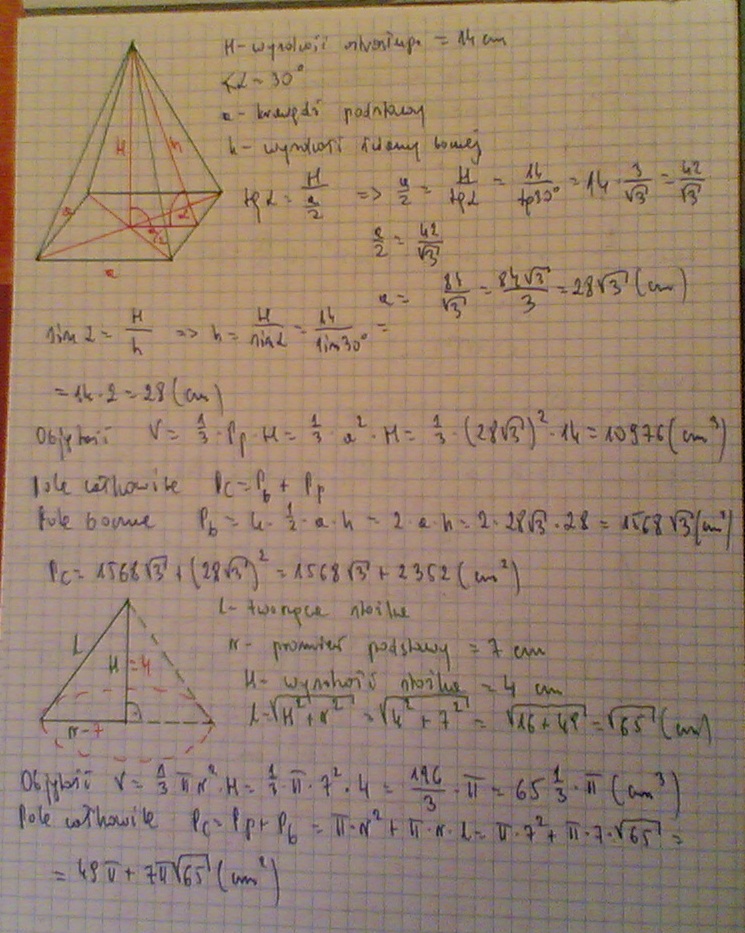 H - wysokość ostrosłupa = 14 cm
∢α = 30°
a - krawędź podstawy
h - wysokość ściany bocznej
H h
a α
a/2
a
tg α = H/(a/2) => a/2 = H/tg α = 14/tg30° = 14 · 3/√3 = 42/√3
a/2 = 42/√3
a = 84/√3 = 84√3/3 = 28√3 (cm)
sin α = H/h => h = H/sin α = 14/sin 30° =
= 14 · 2 = 28 (cm)
Objętość V = 1/3 · Pp · H = 1/3 · a² · H = 1/3 · (28√3)² · 14 = 10976 (cm³)
Pole całkowite Pc = Pb + Pp
Pole boczne Pb = 4 · 1/2 · a · h = 2 · a · h = 2 · 28√3 · 28 = 1568√3 (cm²)
Pc = 1568√3 + (28√3)² = 1568√3 + 2352 (cm²)
L - tworząca stożka
r - promień podstawy = 7 cm
H - wysokość stożka = 4 cm
L = √(H² + r²) = √(4² + 7²) = √(16 + 49) = √65 (cm)
L
H = 4
r - 7
Objętość V = 1/3 π r² · H = 1/3 · π · 7² · 4 = 196/3 · π = 65 1/3 · π (cm³)
Pole całkowite Pc = Pp + Pb = π · r² + π · r · L = π · 7² + π · 7 · √65 =
= 49π + 7π√65 (cm²)